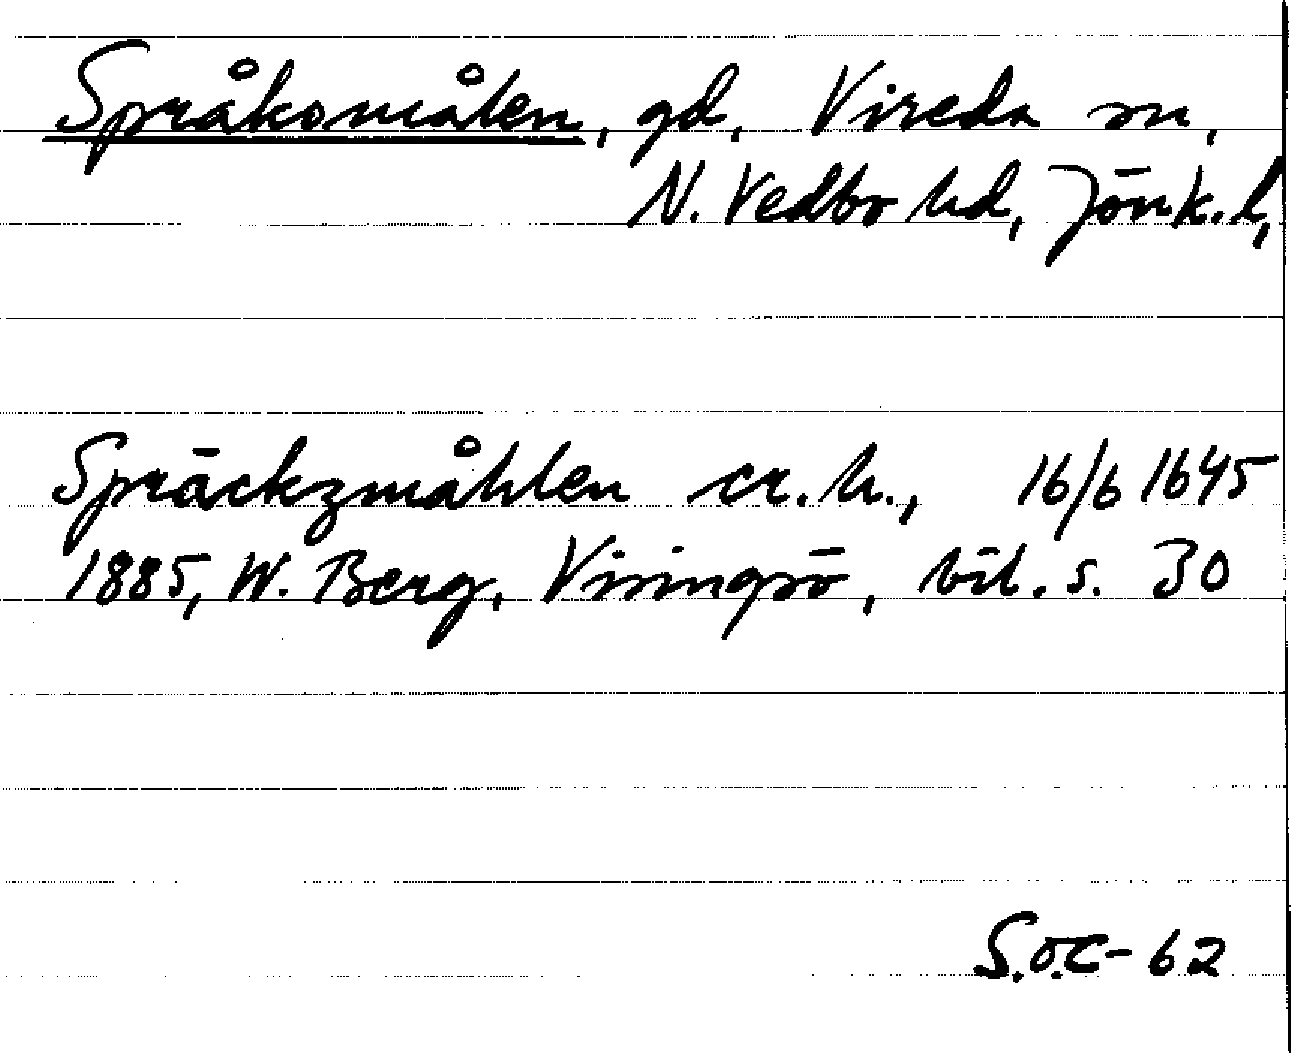 Språkomålen, gd, Vireda sn,
N. Vedbo hd, Jönk. l,
Spräckzmåhlen cr. h., 16/6 1645
1885, W. Berg, Visingsö, bil. s. 30
S.O.C-62